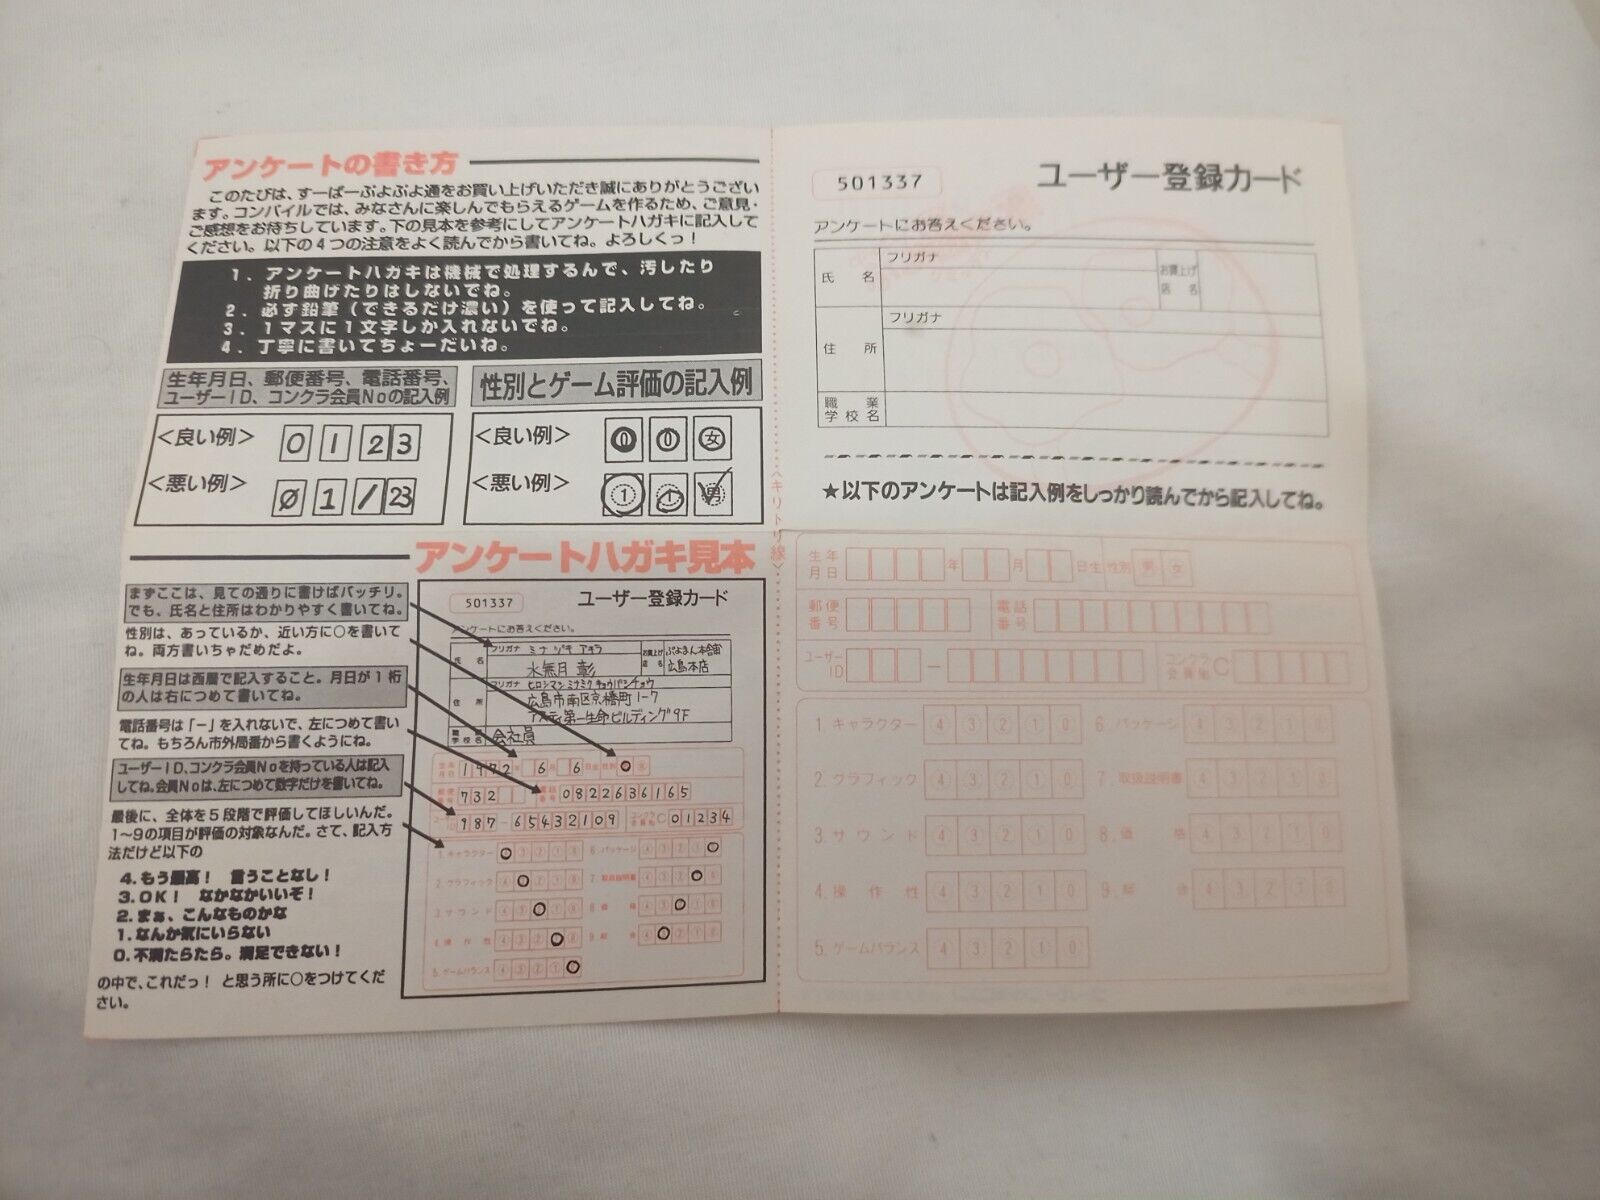 アンケートの書き方
このたびは、すーぱーぷよぷよ通をお買い上げいただき誠にありがとうござい
ます。コンパイルでは、みなさんに楽しんでもらえるゲームを作るため、ご意見・
ご感想をお待ちしています。下の見本を参考にしてアンケートハガキに記入して
ください。以下の4つの注意をよく読んでから書いてね。よろしくっ！
1．アンケートハガキは機械で処理するんで、汚したり
折り曲げたりはしないでね。
2．必ず鉛筆（できるだけ濃い）を使って記入してね。
3．1マスに1文字しか入れないでね。
4．丁寧に書いてちょーだいね。
生年月日、郵便番号、電話番号、
ユーザーID、コンクラ会員Noの記入例
＜良い例＞ 0 1 2 3
＜悪い例＞ 0 1 / 23
性別とゲーム評価の記入例
＜良い例＞ 0 0 女
＜悪い例＞ 1 1 男
アンケートハガキ見本
まずここは、見ての通りに書けばバッチリ。
でも、氏名と住所はわかりやすく書いてね。
性別は、あっているか、近い方に○を書いて
ね。両方書いちゃだめだよ。
生年月日は西暦で記入すること。月日が1桁
の人は右につめて書いてね。
電話番号は「－」を入れないで、左につめて書い
てね。もちろん市外局番から書くようにね。
ユーザーID、コンクラ会員Noを持っている人は記入
してね。会員Noは、左につめて数字だけを書いてね。
最後に、全体を5段階で評価してほしいんだ。
1～9の項目が評価の対象なんだ。さて、記入方
法だけど以下の
4.もう最高！ 言うことなし！
3.OK！ なかなかいいぞ！
2.まぁ、こんなものかな
1.なんか気にいらない
0.不満たらたら。満足できない！
の中で、これだっ！ と思う所に○をつけてくだ
さい。
501337 ユーザー登録カード
アンケートにお答えください。
フリガナ ミナヅキ アキラ
氏名 水無月 彰
お買上げ店名 ぷよまん本舗
広島本店
フリガナ ヒロシマシ ミナミク キョウバシチョウ
住所 広島市南区京橋町1-7
アスティ第一生命ビルディング9F
職業 学校名 会社員
生年月日 1972年 6月 6日生 性別 男 女
郵便番号 732 電話番号 0822636165
ユーザーID 987-65432109 コンクラ会員No C01234
1.キャラクター 4 3 2 1 0 6.パッケージ 4 3 2 1 0
2.グラフィック 4 3 2 1 0 7.取扱説明書 4 3 2 1 0
3.サウンド 4 3 2 1 0 8.価格 4 3 2 1 0
4.操作性 4 3 2 1 0 9.総合 4 3 2 1 0
5.ゲームバランス 4 3 2 1 0
＜キリトリ線＞
501337 ユーザー登録カード
アンケートにお答えください。
氏名 フリガナ お買上げ店名
住所 フリガナ
職業
学校名
★以下のアンケートは記入例をしっかり読んでから記入してね。
生年月日 年 月 日生 性別 男 女
郵便番号 電話番号
ユーザーID － コンクラ会員No C
1.キャラクター 4 3 2 1 0 6.パッケージ 4 3 2 1 0
2.グラフィック 4 3 2 1 0 7.取扱説明書 4 3 2 1 0
3.サウンド 4 3 2 1 0 8.価格 4 3 2 1 0
4.操作性 4 3 2 1 0 9.総合 4 3 2 1 0
5.ゲームバランス 4 3 2 1 0